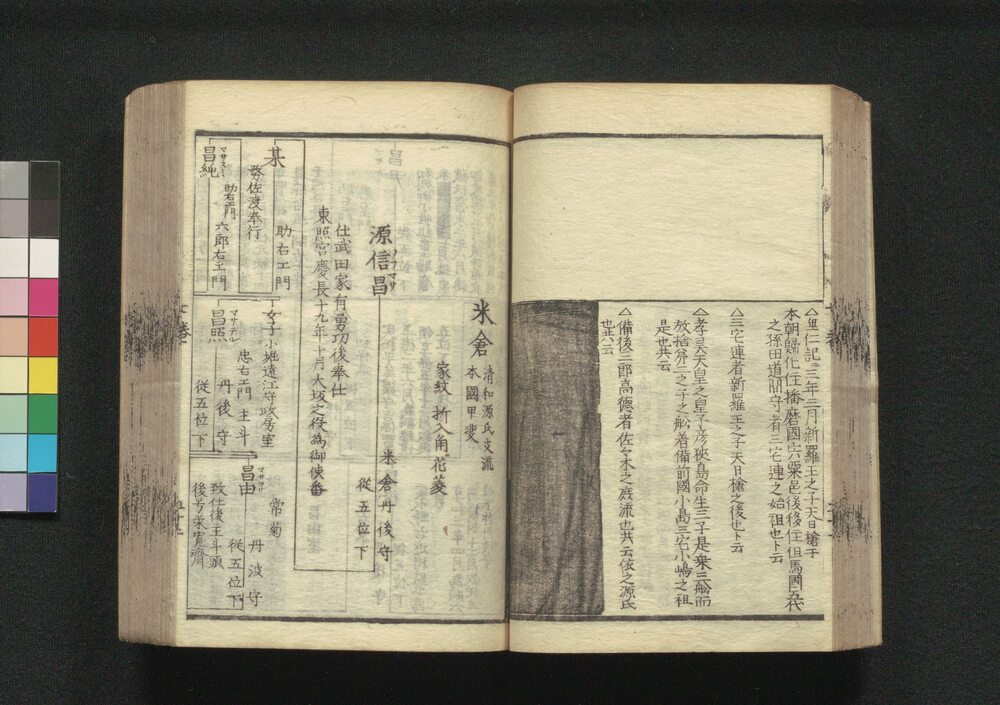 △垂仁記三年三月新羅王之子天日槍于
本朝歸化住播磨國宍粟邑後移住但馬國五代
之孫田道間守者三宅連之始祖也ト云
△三宅連者新羅王之子天日槍之後也ト云
△孝㚑天皇之皇子彦狹島命生三子是乗三舩而
放捨第二之子之舩着備前國小島三宅小嶋之祖
是也共云
△備後三郎髙德者佐々木之庶流也共云依之源氏
也共云
米倉
清和源氏支流
本國甲斐
家紋 折入角花菱
源信昌
米倉丹後守
從五位下
仕武田家有勇功後奉仕
東照宮慶長十九年十月大坂之役為御使番
某
助右エ門
務佐渡奉行
昌純
助右エ門
六郎右エ門
女子小堀遠江守政房室
昌照
マサテル
忠右エ門 主斗
丹後守
從五位下
常菊
昌由
マサヨリ
丹波守
從五位下
致仕後主斗頭
後号